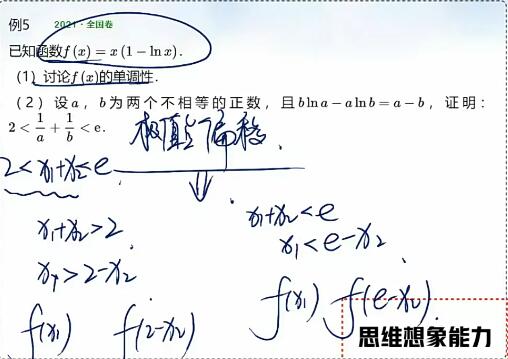 例5 2021·全国卷
已知函数f(x)=x(1−lnx).
(1) 讨论f(x)的单调性.
(2) 设a，b为两个不相等的正数，且blna−alnb=a−b，证明：
2<1/a+1/b<e.
极值点偏移.
2<x₁+x₂<e
x₁+x₂>2
x₁>2−x₂
f(x₁) f(2−x₂)
x₁+x₂<e
x₁<e−x₂
f(x₁) f(e−x₂)
思维想象能力